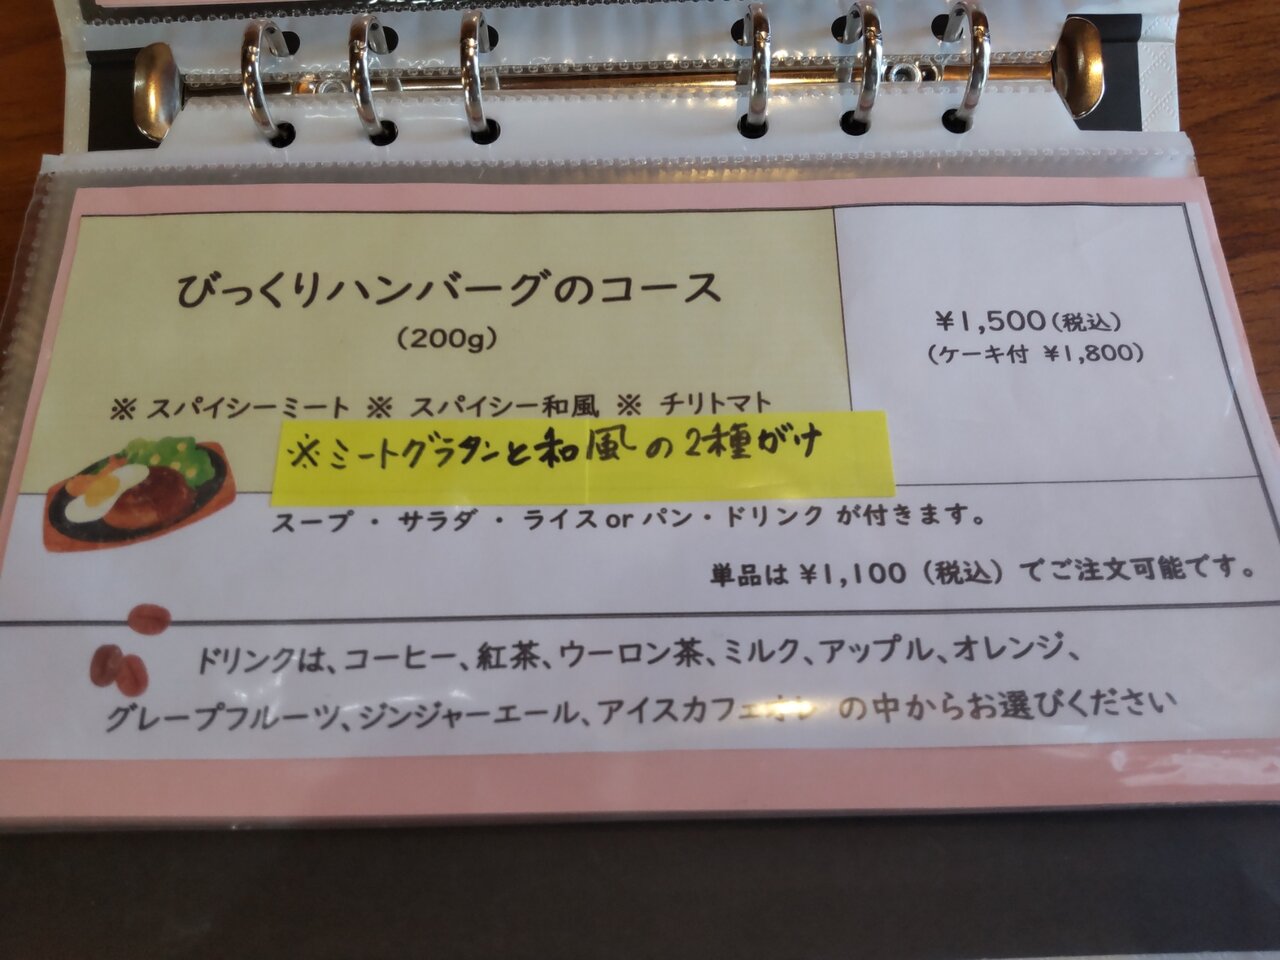 びっくりハンバーグのコース
(200g)
¥1,500(税込)
(ケーキ付 ¥1,800)
※ スパイシーミート ※ スパイシー和風 ※ チリトマト
※ミートグラタンと和風の2種がけ
スープ・サラダ・ライスorパン・ドリンク が付きます。
単品は ¥1,100 (税込) でご注文可能です。
ドリンクは、コーヒー、紅茶、ウーロン茶、ミルク、アップル、オレンジ、
グレープフルーツ、ジンジャーエール、アイスカフェオレ の中からお選びください